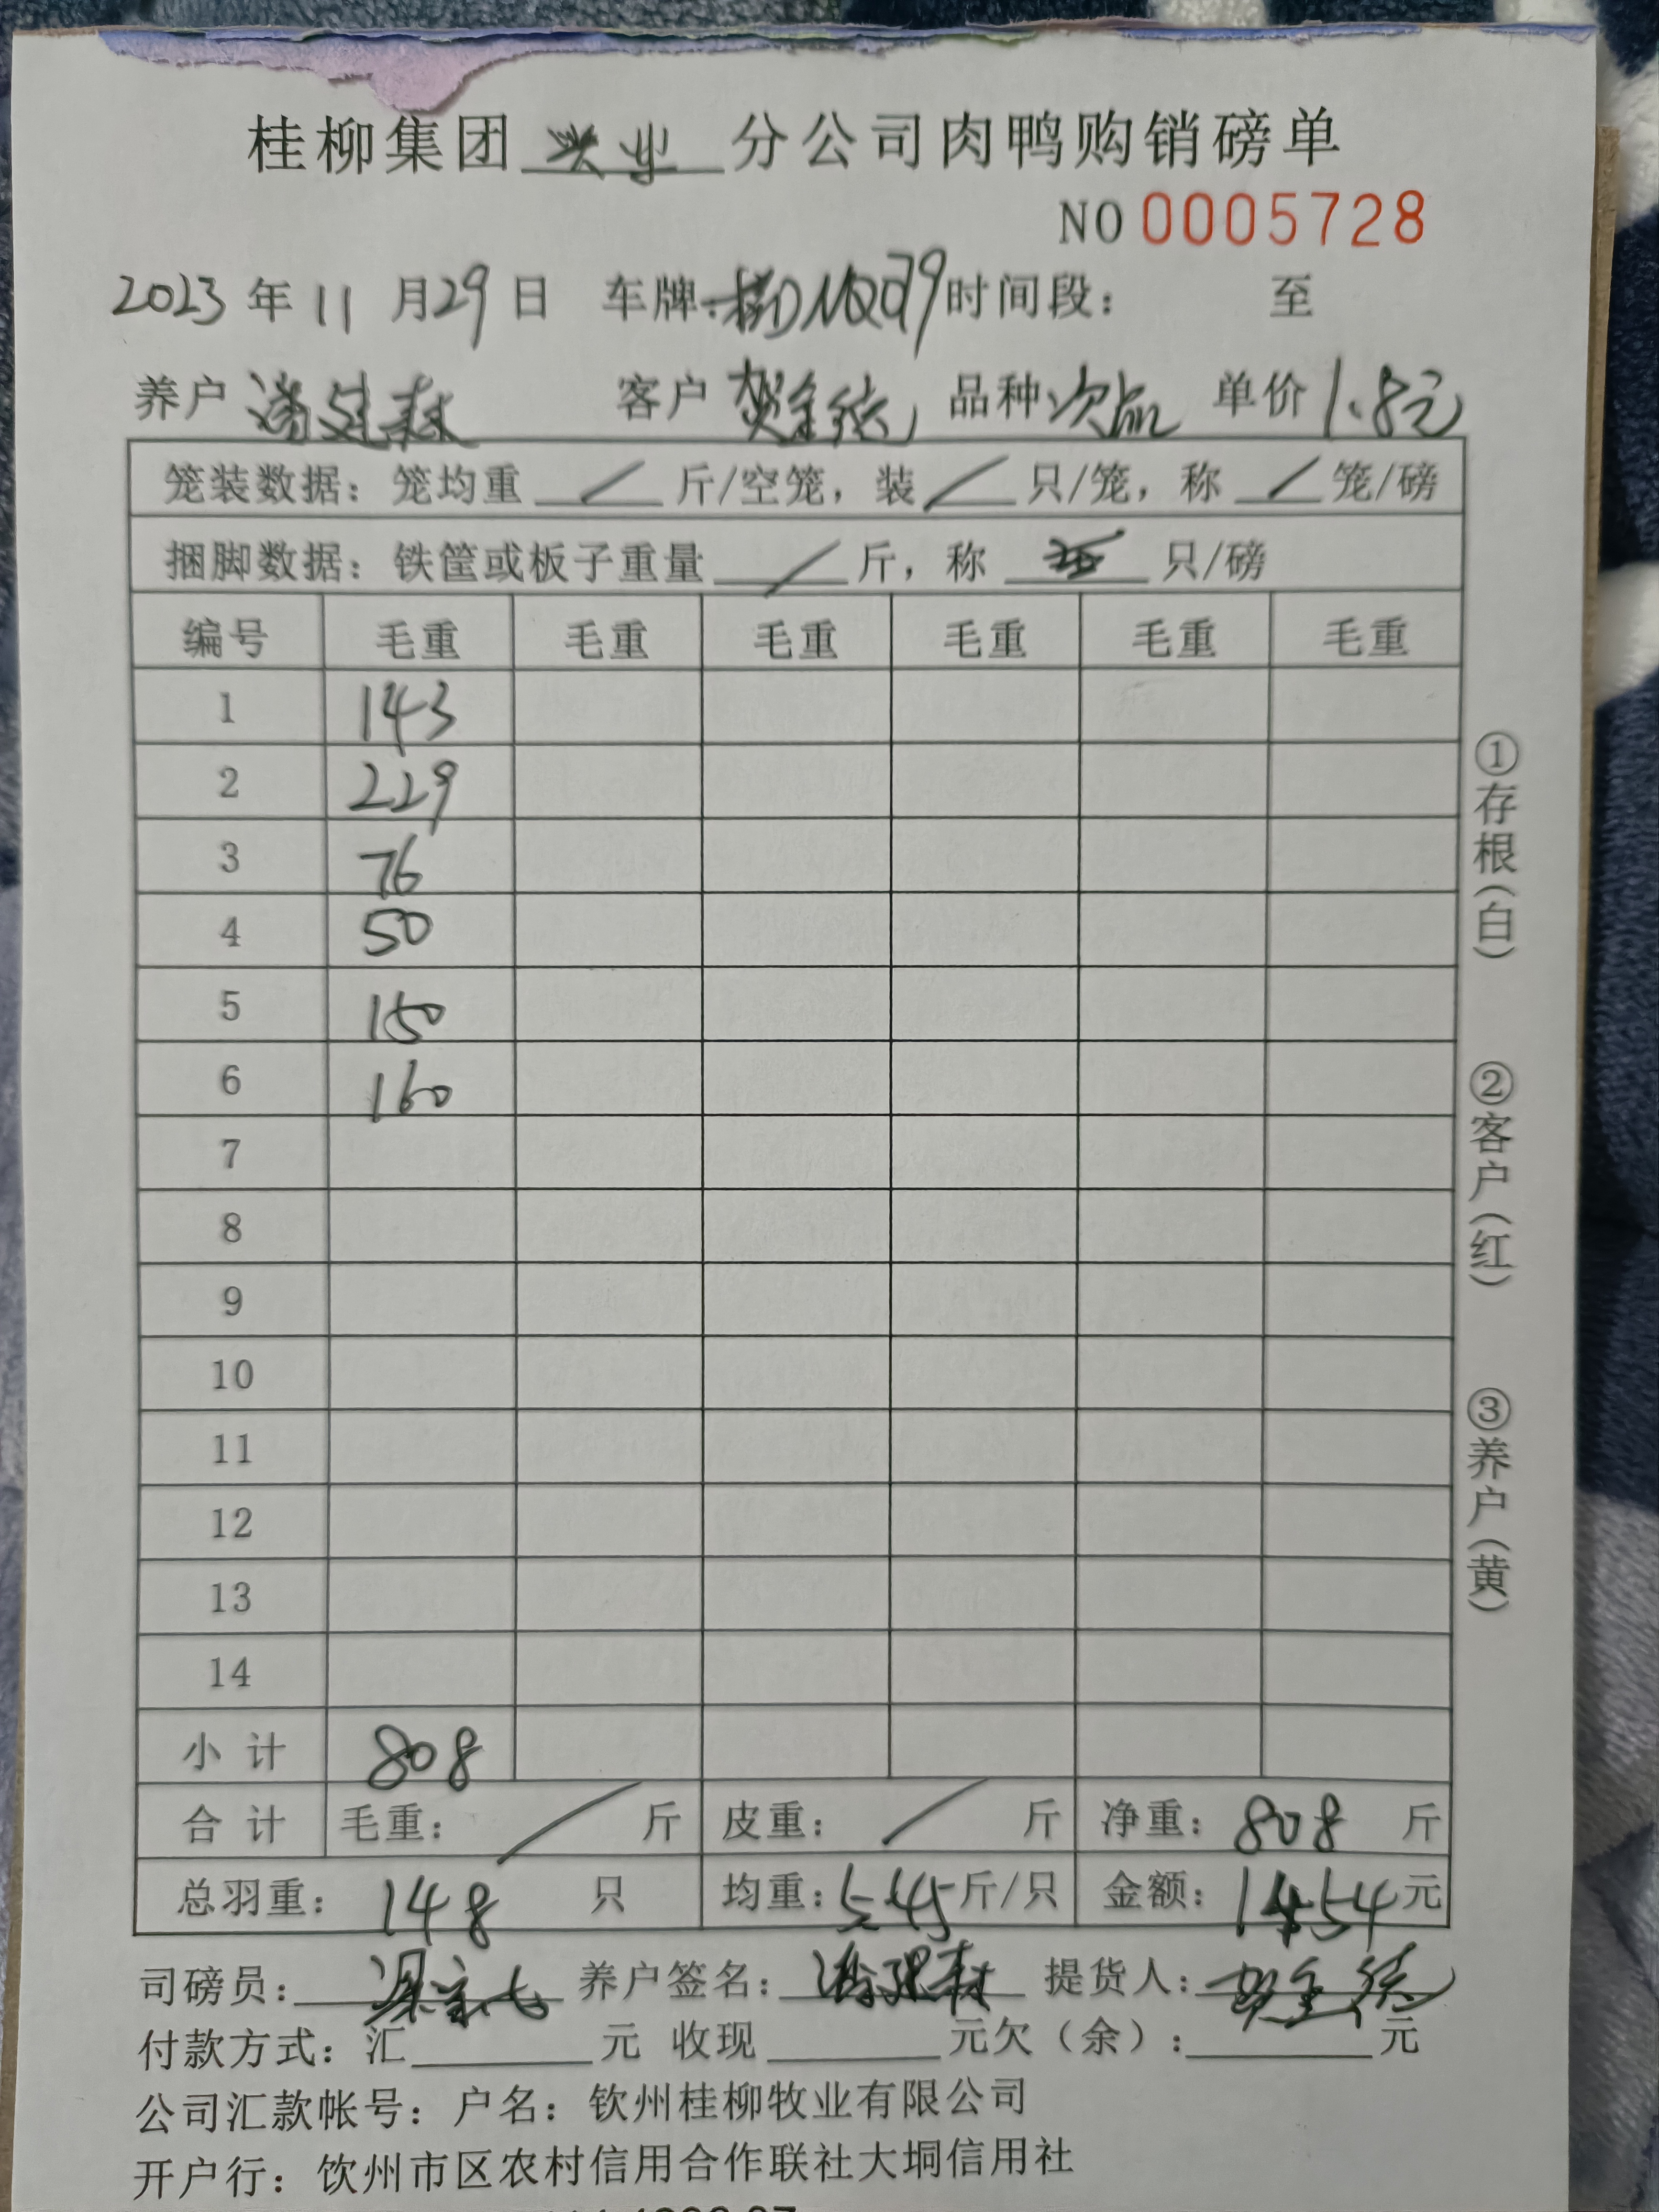 桂柳集团 兴业 分公司肉鸭购销磅单
NO 0005728
2023 年 11 月 29 日 车牌: 时间段: 至
养户 客户 贺全德 品种 次品 单价 1.8元
笼装数据: 笼均重 / 斤/空笼, 装 / 只/笼, 称 / 笼/磅
捆脚数据: 铁筐或板子重量 / 斤, 称 只/磅
编号 毛重 毛重 毛重 毛重 毛重 毛重
1 143
2 229
3 76
4 50
5 150
6 160
7
8
9
10
11
12
13
14
小计 808
合计 毛重: / 斤 皮重: / 斤 净重: 808 斤
总羽重: 148 只 均重: 5.45 斤/只 金额: 1454 元
司磅员: 养户签名: 提货人: 贺全德
付款方式: 汇 元 收现 元欠(余): 元
公司汇款帐号: 户名: 钦州桂柳牧业有限公司
开户行: 钦州市区农村信用合作联社大垌信用社
①存根(白)
②客户(红)
③养户(黄)